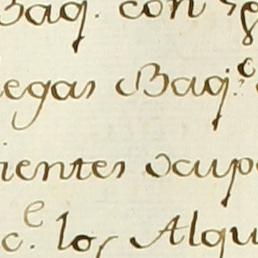 Baq. con
egas Baq.º
ientes ocup
c.e los Alqu